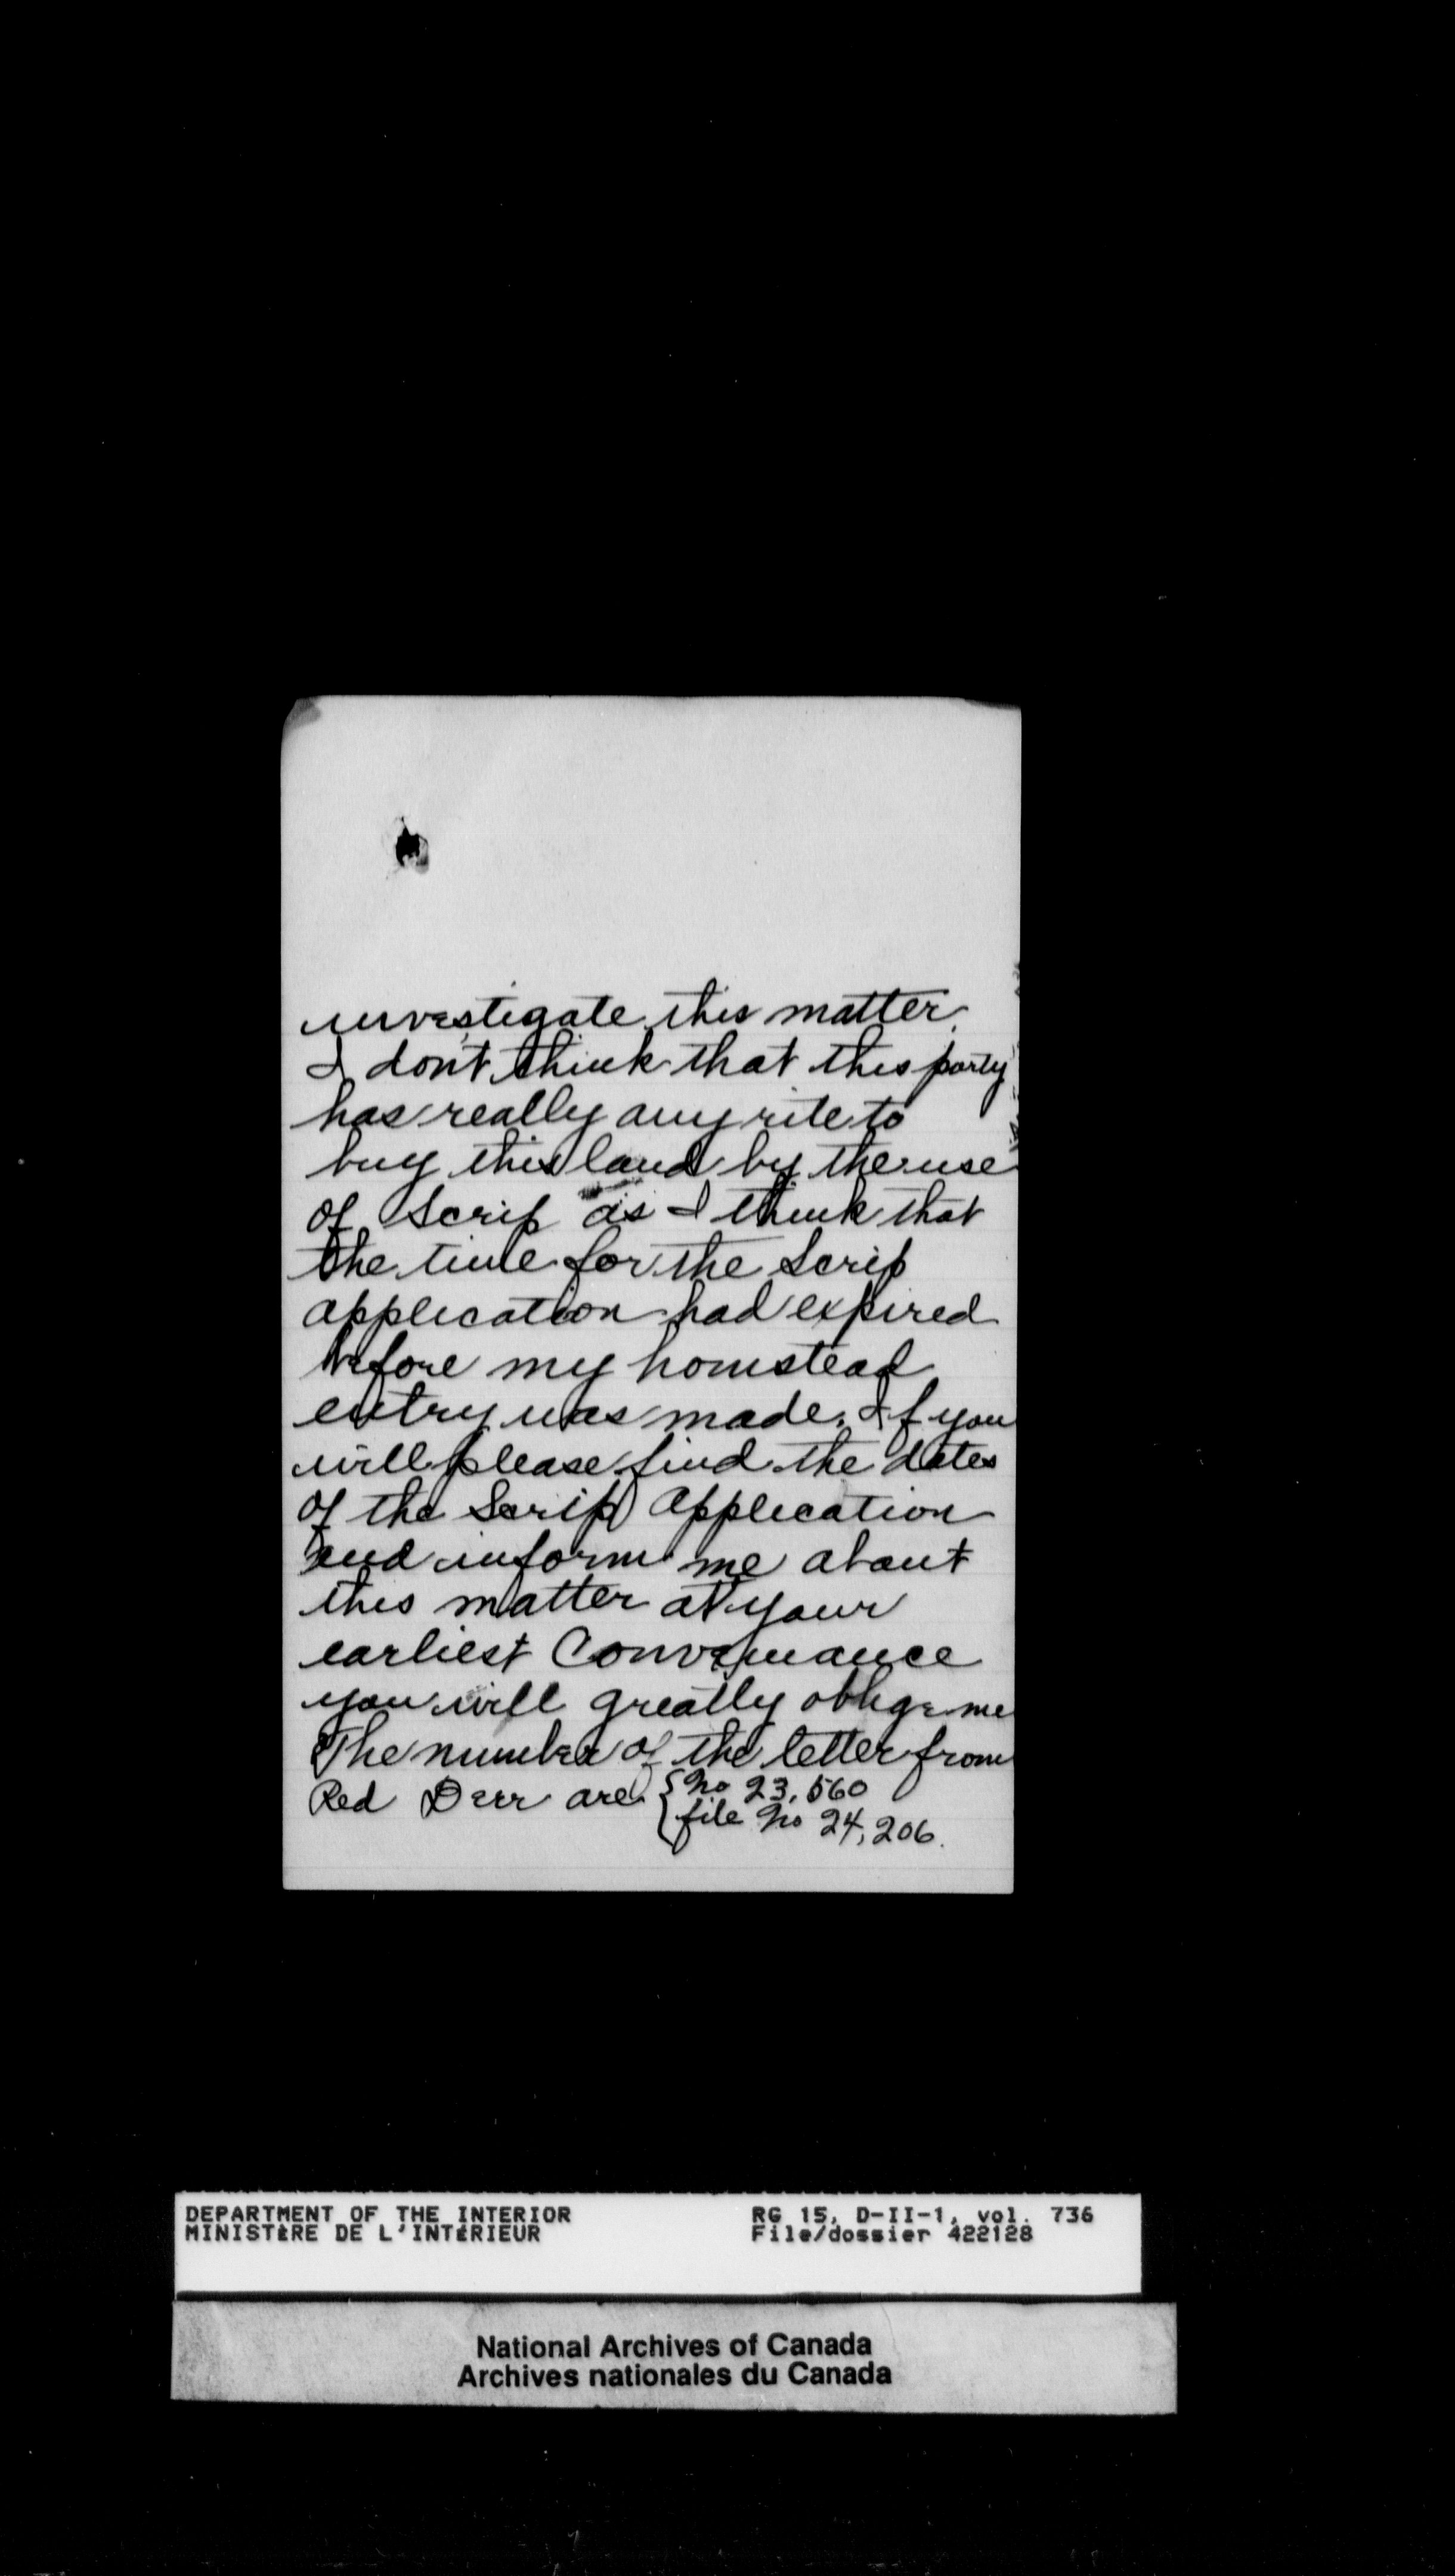 investigate this matter.
I don't think that this party
has really any rite to
buy this land by the use
of Scrip as I think that
the time for the Scrip
application had expired
before my homstead
entry was made. If you
will please find the dates
of the Scrip application
and inform me about
this matter at your
earliest Convenance
you will greatly oblige me
The number of the letter from
Red Deer are { No 23,560
file No 24,206.
DEPARTMENT OF THE INTERIOR RG 15, D-II-1, vol. 736
MINISTÈRE DE L'INTÉRIEUR File/dossier 422128
National Archives of Canada
Archives nationales du Canada